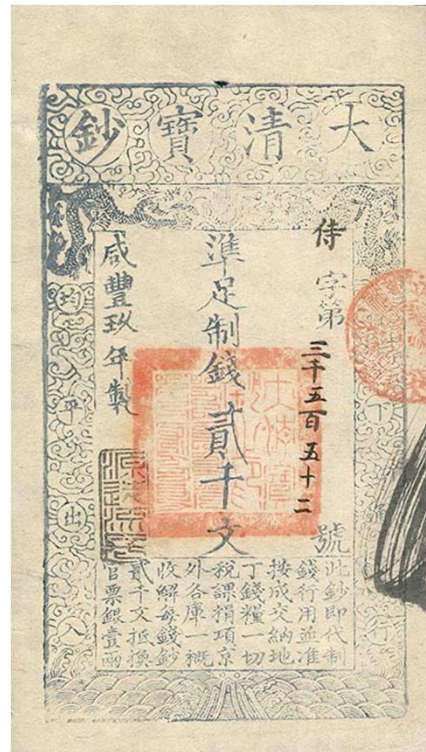 大清寶鈔
下通行
侍字第三千五百五十二號
準足制錢貳千文
咸豐玖年製
均平出入
此鈔即代制
錢行用並准
按成交納地
丁錢糧一切
稅課捐項京
外各庫一概
收解每錢鈔
貳千文抵換
官票銀壹兩